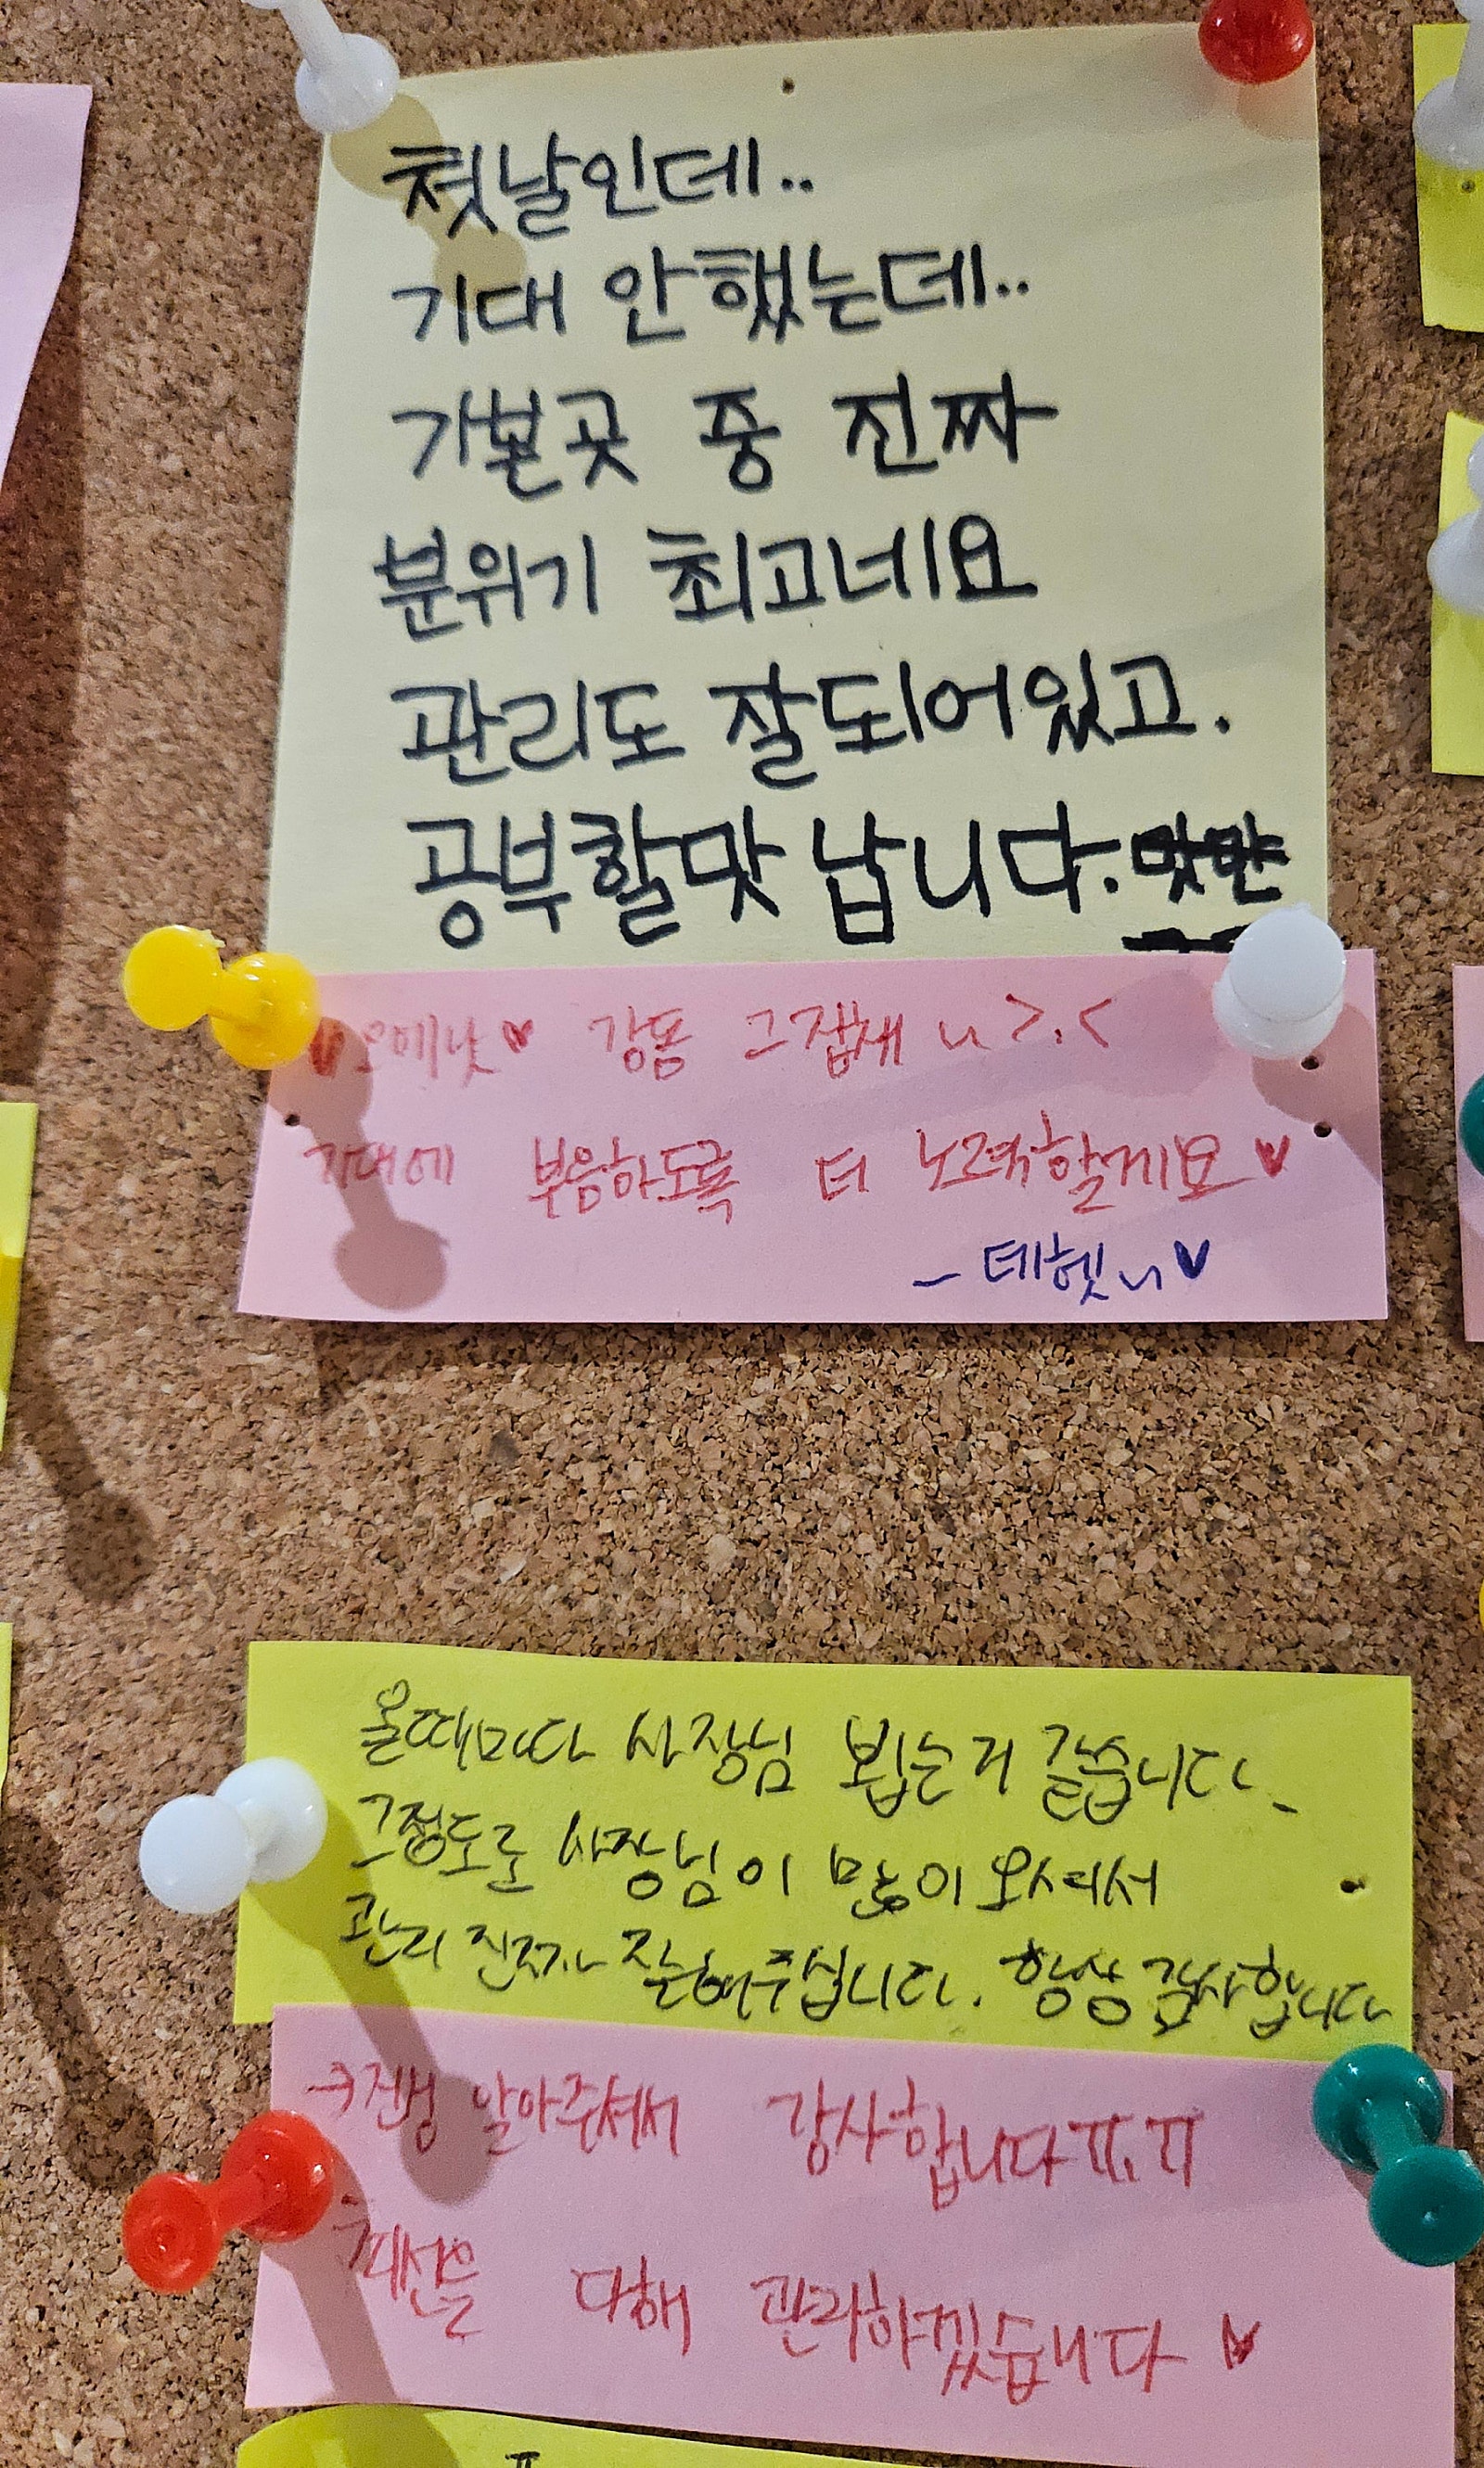 첫날인데..
기대 안했는데..
가본곳 중 진짜
분위기 최고네요
관리도 잘되어있고.
공부할맛 납니다.
♥오메낫♥ 감동 그잡채 >.<
기대에 부응하도록 더 노력할게요♥
올때마다 사장님 뵙는거 같습니다
그정도로 사장님이 많이 오셔서
관리 진짜 잘해주십니다. 항상 감사합니다
알아주셔서 감사합니다ㅠ.ㅠ
최선을 다해 관리하겠습니다 ♥